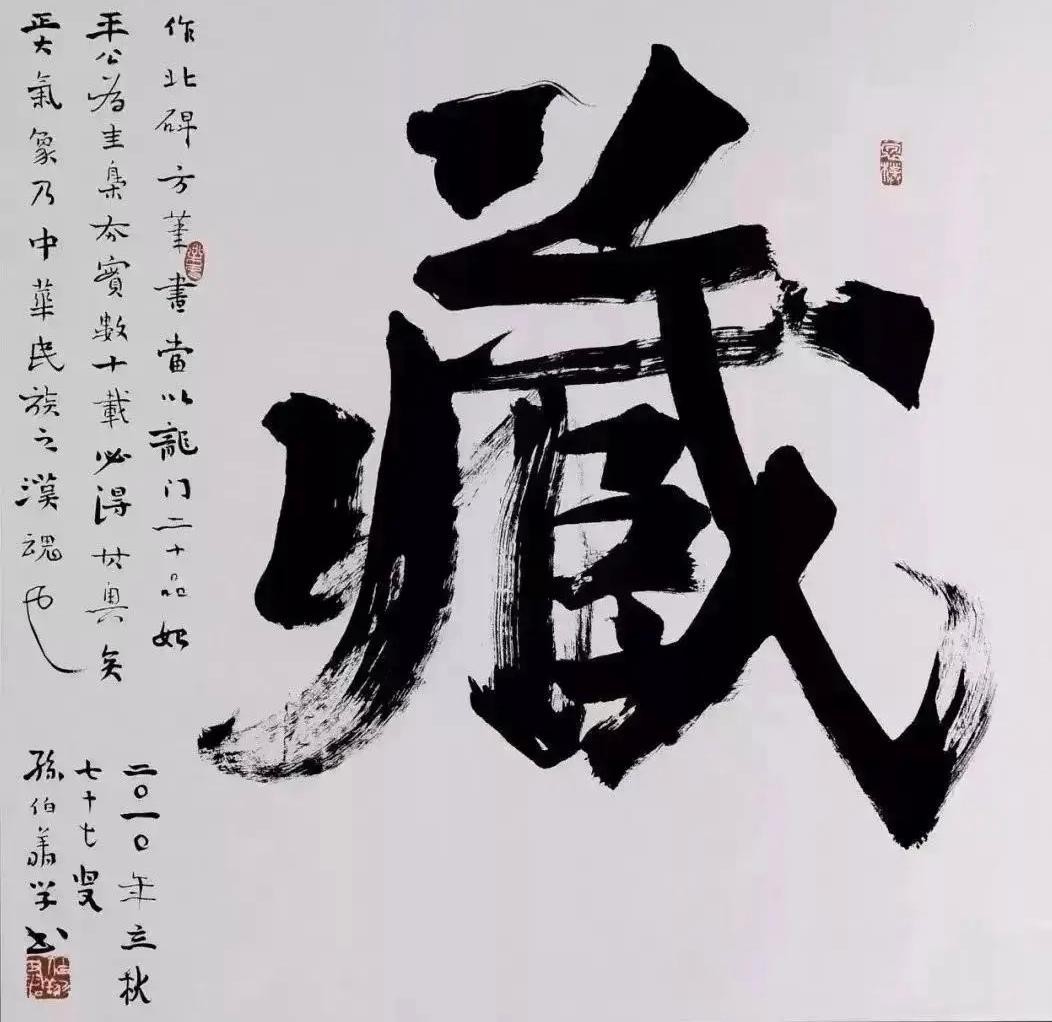 藏
作北碑方筆書當以龍门二十品始
平公为圭臬夯實數十載必得其奥矣
正大氣象乃中華民族之漢魂也
二〇一〇年立秋
七十七叟
孫伯翔学书